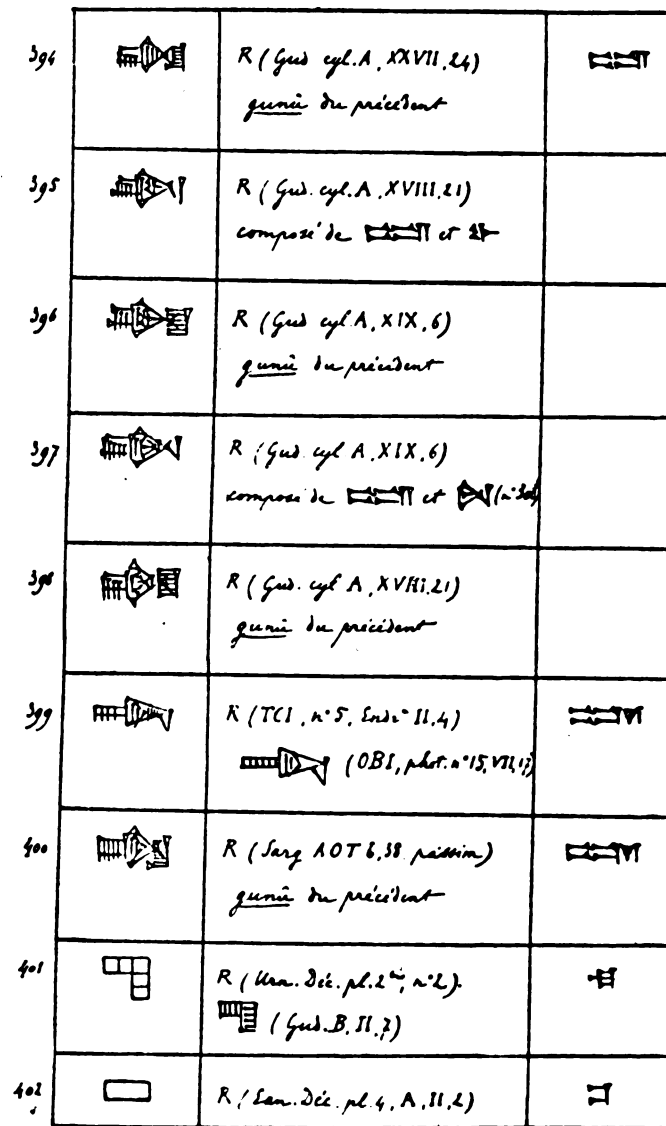 394 R (Gud cyl. A, XXVII, 24)
gunû du précédent
395 R (Gud. cyl. A, XVIII, 21)
composé de et
396 R (Gud cyl. A, XIX, 6)
gunû du précédent
397 R (Gud. cyl A, XIX, 6)
composé de et (n°
398 R (Gud. cyl A, XVIII, 21)
gunû du précédent
399 R (TCI, n° 5, II, 4)
(OBI, phot. n° 15, VII,
400 R (Sarg AOT b, 38 passim)
gunû du précédent
401 R (Urn. Déc. pl. 2 n° 2).
(Gud. B, II, 7)
402 R (Ean. Déc. pl. 4, A, II, 2)